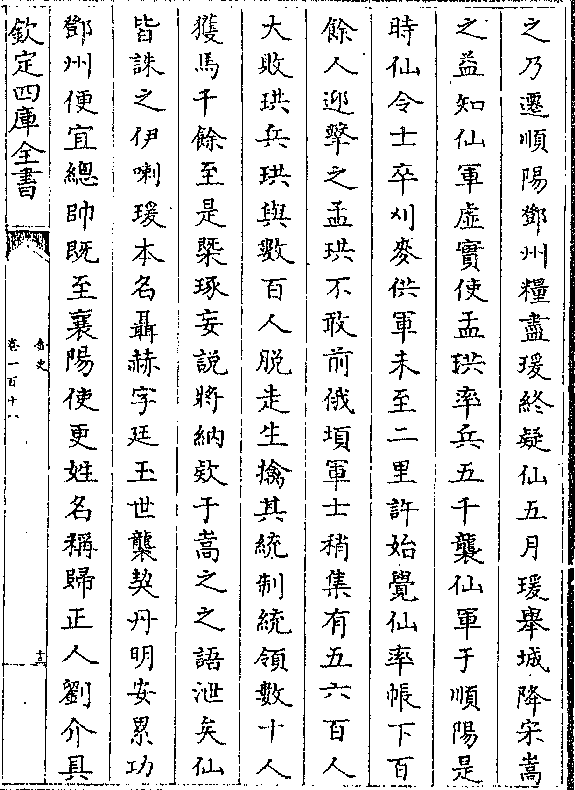 之乃遷順陽鄧州糧盡瑗終疑仙五月瑗舉城降宋嵩
之益知仙軍虛實使孟珙率兵五千襲仙軍于順陽是
時仙令士卒刈麥供軍未至二里許始覺仙率帳下百
餘人迎擊之孟珙不敢前俄頃軍士稍集有五六百人
大敗珙兵珙與數百人脫走生擒其統制統領數十人
獲馬千餘至是㮚琢妄說將納欵于嵩之之語泄矣仙
皆誅之伊喇瑗本名聶赫字廷玉世襲契丹明安累功
鄧州便宜總帥既至襄陽使更姓名稱歸正人劉介具
欽定四庫全書
金史
卷一百十八
十三